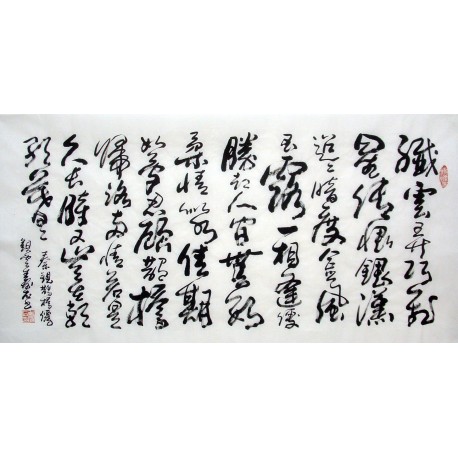 纖雲弄巧飛
星傳恨銀漢
迢々暗度金風
玉露一相逢便
勝却人間無數
柔情似水佳期
如夢忍顧鵲橋
歸路兩情若是
久長時又豈在朝
朝暮々
秦觀鵲橋仙